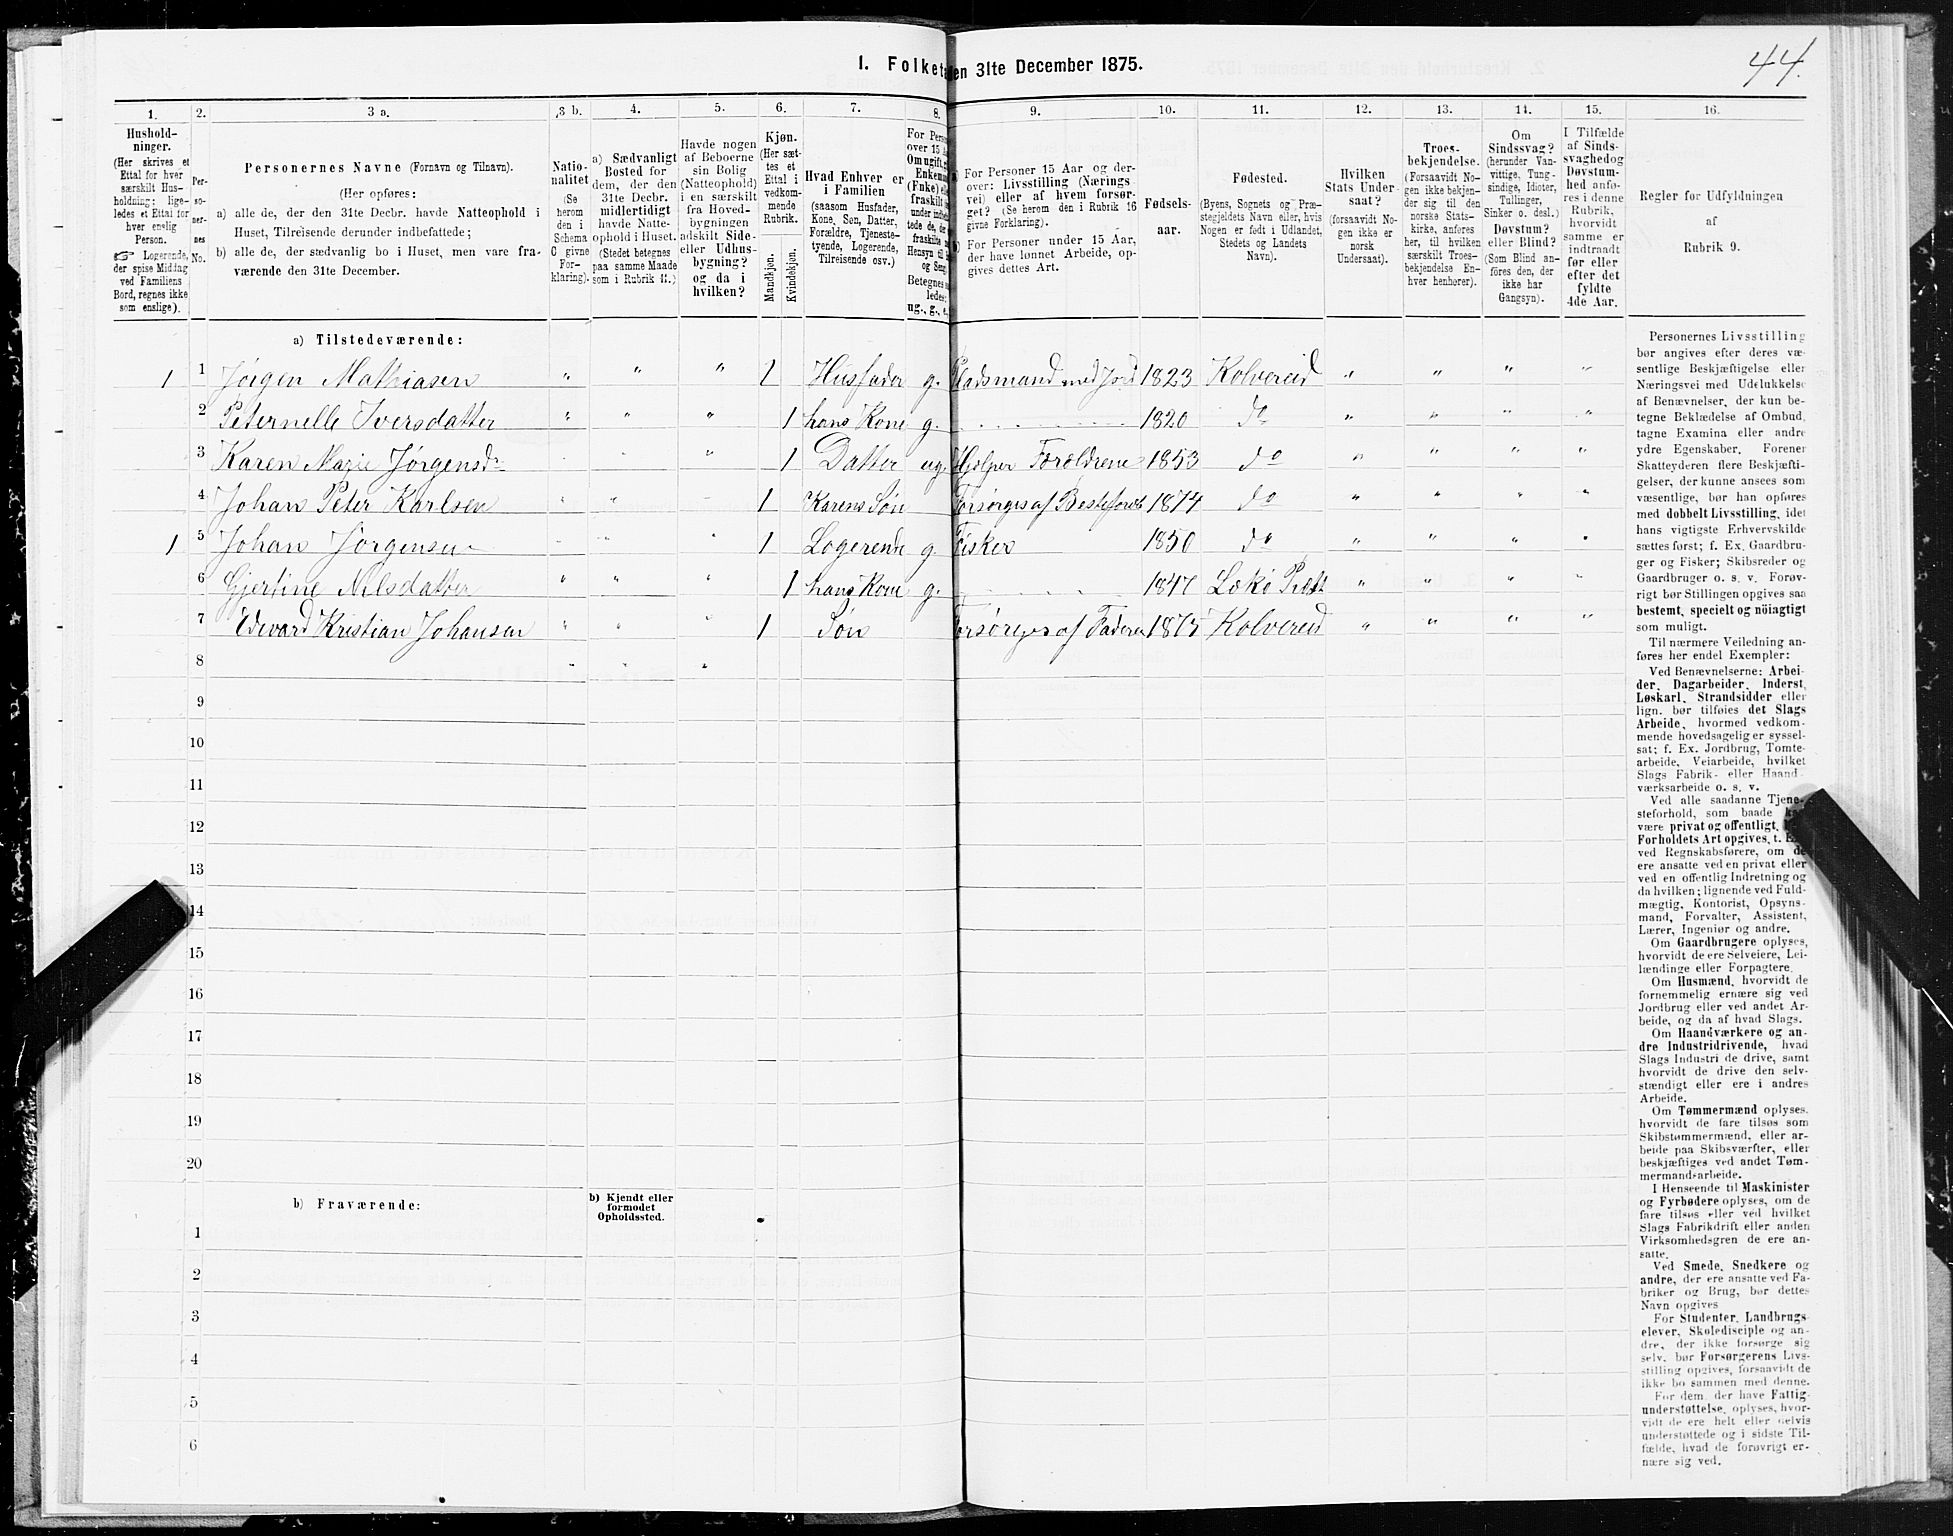 44.
1. Folket en 31te December 1875.
1. 2. 3 a. 3 b. 4. 5. 6. 7. 8. 9. 10. 11. 12. 13. 14. 15. 16.
Hushold-
ninger.
(Her skrives et
Ettal for hver
særskilt Hus-
holdning; lige-
ledes et Ettal for
hver enslig
Person.
☞ Logerende,
der spise Middag
ved Familiens
Bord, regnes ikke
som enslige).
Per-
so-
ner-
nes
No.
Personernes Navne (Fornavn og Tilnavn).
(Her opføres:
a) alle de, der den 31te Decbr. havde Natteophold i
Huset, Tilreisende derunder indbefattede;
b) alle de, der sædvanlig bo i Huset, men vare fra-
værende den 31te December.
Natio-
nalitet
(Se
herom
den i
Schema
C givne
For-
klaring).
a) Sædvanligt
Bosted for
dem, der den
31te Decbr.
midlertidigt
havde Natte-
ophold i Huset.
(Stedet betegnes
paa samme Maade
som i Rubrik 11.)
Havde nogen
af Beboerne
sin Bolig
(Natteophold)
i en særskilt
fra Hoved-
bygningen
adskilt Side-
eller Udhus-
bygning?
og da i
hvilken?
Kjøn.
(Her sæt-
tes et
Ettal i
vedkom-
mende
Rubrik.
Mandkjøn.
Kvindekjøn.
Hvad Enhver er
i Familien
(saasom Husfader,
Kone, Søn, Datter,
Forældre, Tjeneste-
tyende, Logerende,
Tilreisende osv.)
For Pers
over 15 A
Om ugift, g
Enkema
(Enke) elle
fraskilt
under indbe
tede de, d
fraskilte
Hensyn til
og Seng
Betegnes s
ledes:
ug., g., e.,
a) For Personer 15 Aar og der-
over: Livsstilling (Nærings
vei) eller af hvem forsør-
get? (Se herom den i Rubrik 16
givne Forklaring).
b) For Personer under 15 Aar,
der have lønnet Arbeide, op-
gives dettes Art.
Fødsels-
aar.
Fødested.
(Byens, Sognets og Præ-
stegjeldets Navn eller, hvis
Nogen er født i Udlandet,
Stedets og Landets
Navn).
Hvilken
Stats Under-
saat?
(forsaavidt No-
gen ikke er
norsk
Undersaat).
Troes-
bekjendelse.
(Forsaavidt No-
gen ikke bekjen-
der sig til den
norske Stats-
kirke, anføres
her, til hvilken
særskilt Troes-
bekjendelse En-
hver henhører).
Om
Sindssvag?
(herunder Van-
vittige, Tung-
sindige, Idioter,
Tullinger,
Sinker o. desl.)
Døvstum?
eller Blind?
(Som Blind an-
føres den, der
ikke har
Gangsyn).
I Tilfælde
af Sinds-
svaghed og
Døvstum-
hed anfø-
res i denne
Rubrik,
hvorvidt
samme er
indtraadt
før eller
efter det
fyldte
4de Aar.
Regler for Udfyldningen
af
Rubrik 9.
a) Tilstedeværende:
1 1 Jørgen Mathiasen " " " 1 Husfader g. Pladsmand med Jord 1823 Kolvereid " " " "
2 Peternelle Iversdatter " " " 1 hans Kone g. 1820 do " " " "
3 Karen Marie Jørgensd. " " " 1 Datter ug. Hjelper Forældrene 1853 do " " " "
4 Johan Peter Karlsen " " 1 Karens Søn Forsørges af Bestefored 1874 do " " " "
1 5 Johan Jørgensen " " " 1 Logerende g Fisker 1850 do " " " "
6 Gjertine Nilsdatter " " " 1 hans Kone g. 1847 Lekø Præst " " " "
7 Edevard Kristian Johansen " " " 1 Søn Forsørges af Faderen 1875 Kolvereid " " " "
8 " " "
9
10
11
12
13
14
15
16
17
18
19
20
b) Fraværende:
b) Kjendt eller
formodet
Opholdssted.
1
2
3
4
5
6
Personernes Livsstilling
bør angives efter deres væ-
sentlige Beskjæftigelse eller
Næringsvei med Udelukkelse
af Benævnelser, der kun be-
tegne Beklædelse af Ombud,
tagne Examina eller andre
ydre Egenskaber. Forener
Skatteyderen flere Beskjæfti-
gelser, der kunne ansees som
væsentlige, bør han opføres
med dobbelt Livsstilling, idet
hans vigtigste Erhvervskilde
sættes først; f. Ex. Gaardbru-
ger og Fisker; Skibsreder og
Gaardbruger o. s. v. Forøv-
rigt bør Stillingen opgives saa
bestemt, specielt og nöiagtigt
som muligt.
Til nærmere Veiledning an-
føres her endel Exempler:
Ved Benævnelserne: Arbei-
der, Dagarbeider, Inderst,
Løskarl, Strandsidder eller
lign. bør tilføies det Slags
Arbeide, hvormed vedkom-
mende hovedsagelig er syssel-
sat; f. Ex. Jordbrug, Tomte-
arbeide, Veiarbeide, hvilket
Slags Fabrik- eller Haand-
værksarbeide o. s. v.
Ved alle saadanne Tjene-
steforhold, som baade k
være privat og offentligt,
Forholdets Art opgives, t. E
ved Regnskabsførere, om de
ere ansatte ved en privat eller
ved en offentlig Indretning og
da hvilken; lignende ved Fuld-
mægtig, Kontorist, Opsyns-
mand, Forvalter, Assistent,
Lærer, Ingeniør og andre.
Om Gaardbrugere oplyses,
hvorvidt de ere Selveiere, Lei-
lændinge eller Forpagtere.
Om Husmænd, hvorvidt de
fornemmelig ernære sig ved
Jordbrug eller ved andet Ar-
beide, og da af hvad Slags.
Om Haandværkere og an-
dre Industridrivende, hvad
Slags Industri de drive, samt
hvorvidt de drive den selv-
stændigt eller ere i andres
Arbeide.
Om Tømmermænd oplyses,
hvorvidt de fare tilsøs som
Skibstømmermænd, eller ar-
beide paa Skibsværfter, eller
beskjæftiges ved andet Tøm-
mermandsarbeide.
I Henseende til Maskinister
og Fyrbødere oplyses, om de
fare tilsøs eller ved hvilket
Slags Fabrikdrift eller anden
Virksomhedsgren de ere an-
satte.
Ved Smede, Snedkere og
andre, der ere ansatte ved Fa-
briker og Brug, bør dettes
Navn opgives
For Studenter, Landbrugs-
elever, Skoledisciple og an-
dre, der ikke forsørge sig
selv, bør Forsørgerens Livs-
stilling opgives, forsaavidt de
ikke bo sammen med denne.
For dem, der have Fattig-
understøttelse, oplyses, hvor-
vidt de ere helt eller delvis
understøttede og i sidste Til-
fælde, hvad de forøvrigt er-
nære sig ved.